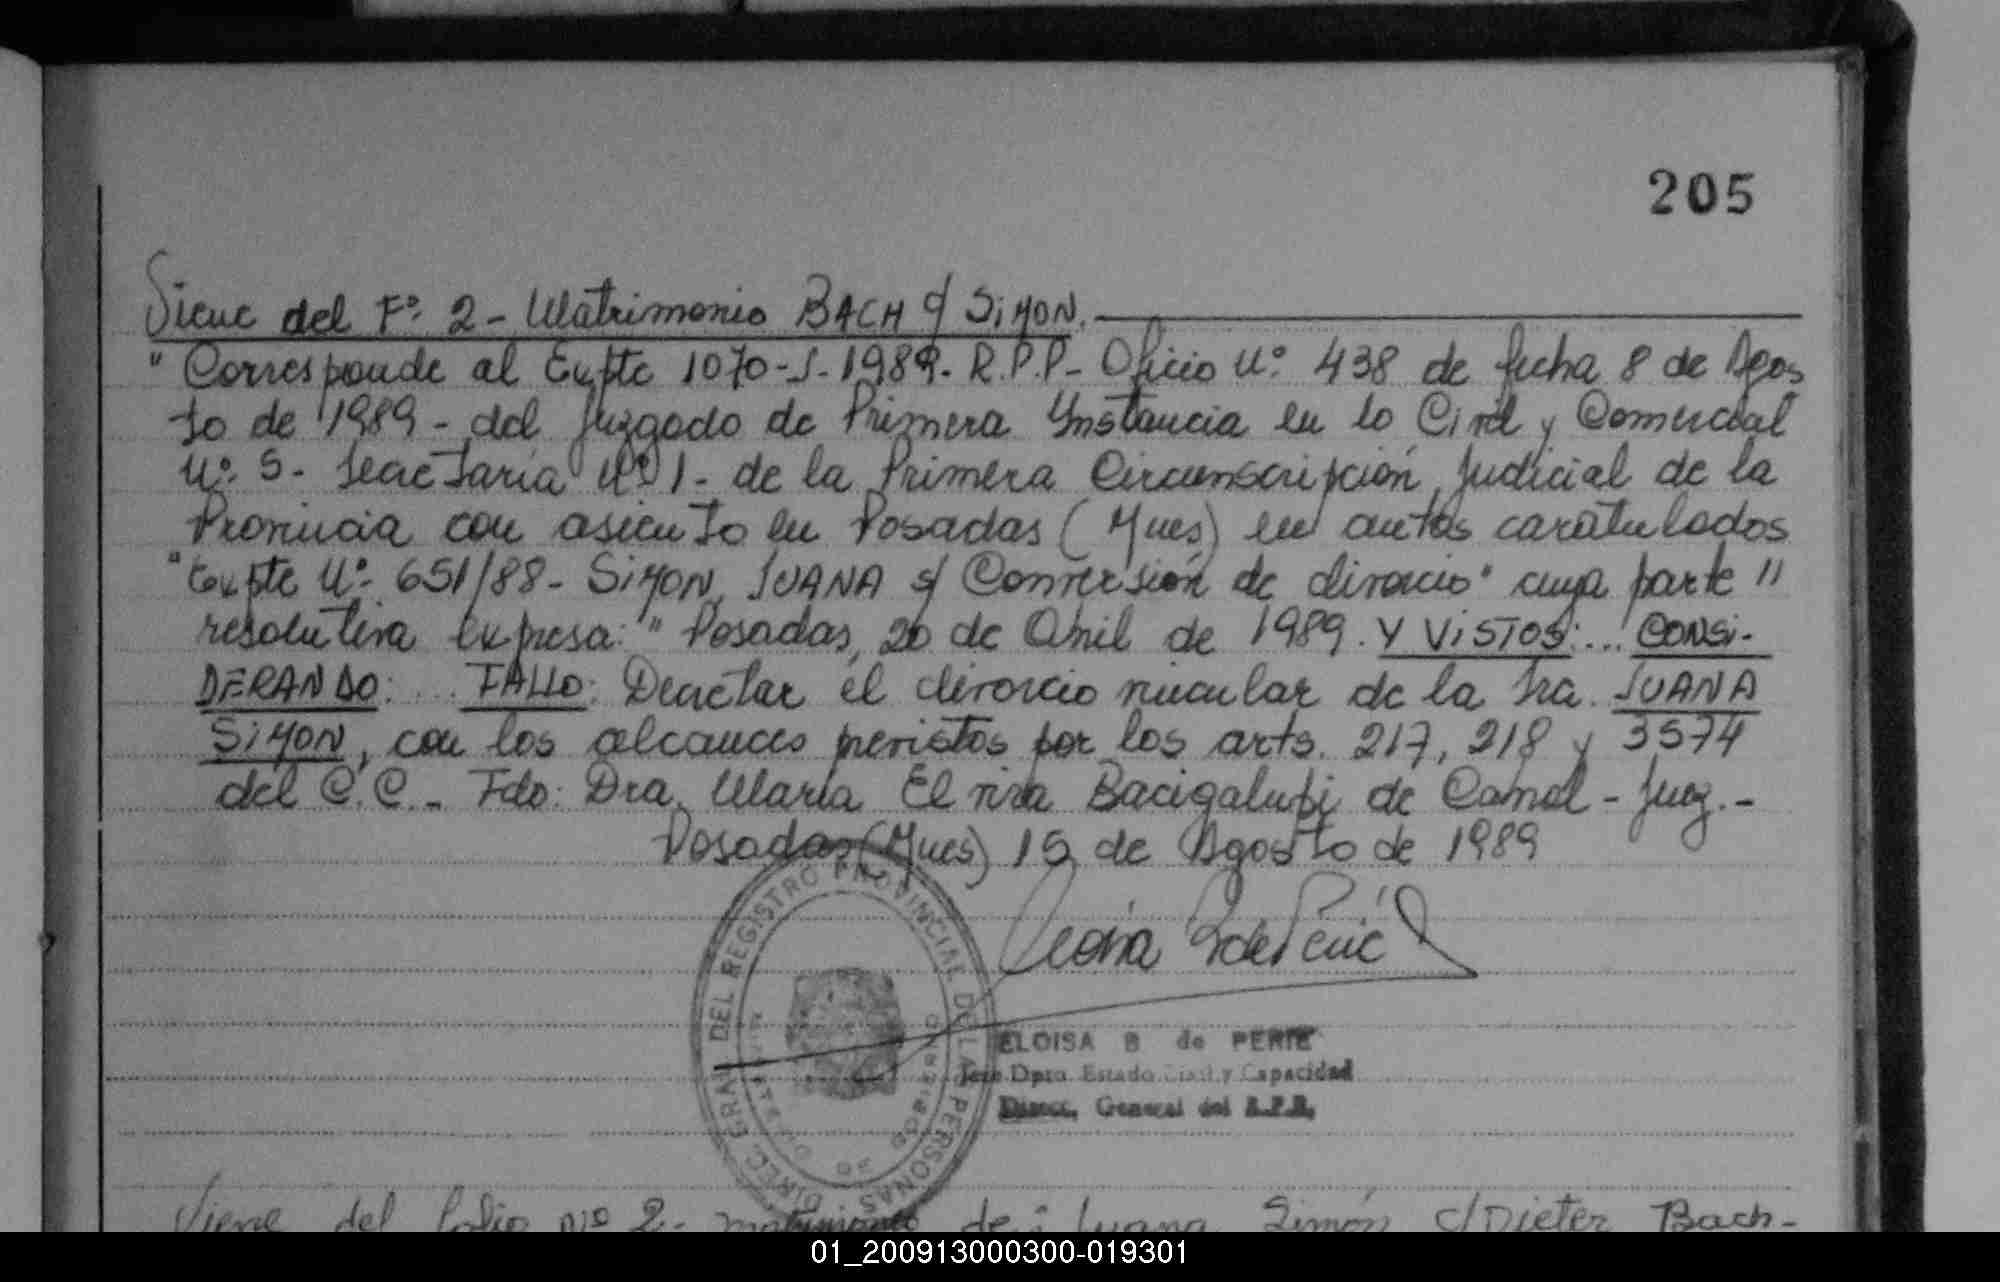 205
Viene del Fº 2 - Matrimonio BACH c/ SIMON.
"Corresponde al Expte 1070-S-1989. R.P.P- Oficio Nº 438 de fecha 8 de Agos
to de 1989 - del Juzgado de Primera Instancia en lo Civil y Comercial
Nº 5 - Secretaría Nº 1 - de la Primera Circunscripción Judicial de la
Provincia con asiento en Posadas (Mnes) en autos caratulados
"Expte Nº 651/88 - SIMON, JUANA s/ Conversión de divorcio" cuya parte //
resolutiva expresa: "Posadas, 20 de Abril de 1989. Y VISTOS:... CONSI-
DERANDO: ... FALLO: Decretar el divorcio vincular de la Sra. JUANA
SIMON, con los alcances previstos por los arts. 217, 218 y 3574
del C.C. - Fdo: Dra. María Elvira Bacigalupi de Camol - Juez. -
Posadas (Mnes) 15 de Agosto de 1989
DIREC. GRAL DEL REGISTRO PROVINCIAL DE LAS PERSONAS
ELOISA B de PERIE
Jefe Dpto. Estado Civil y Capacidad
Direcc. General del R.P.P.
Viene del folio Nº 2 - matrimonio de: Juana Simón c/ Dieter Bach-
01_200913000300-019301